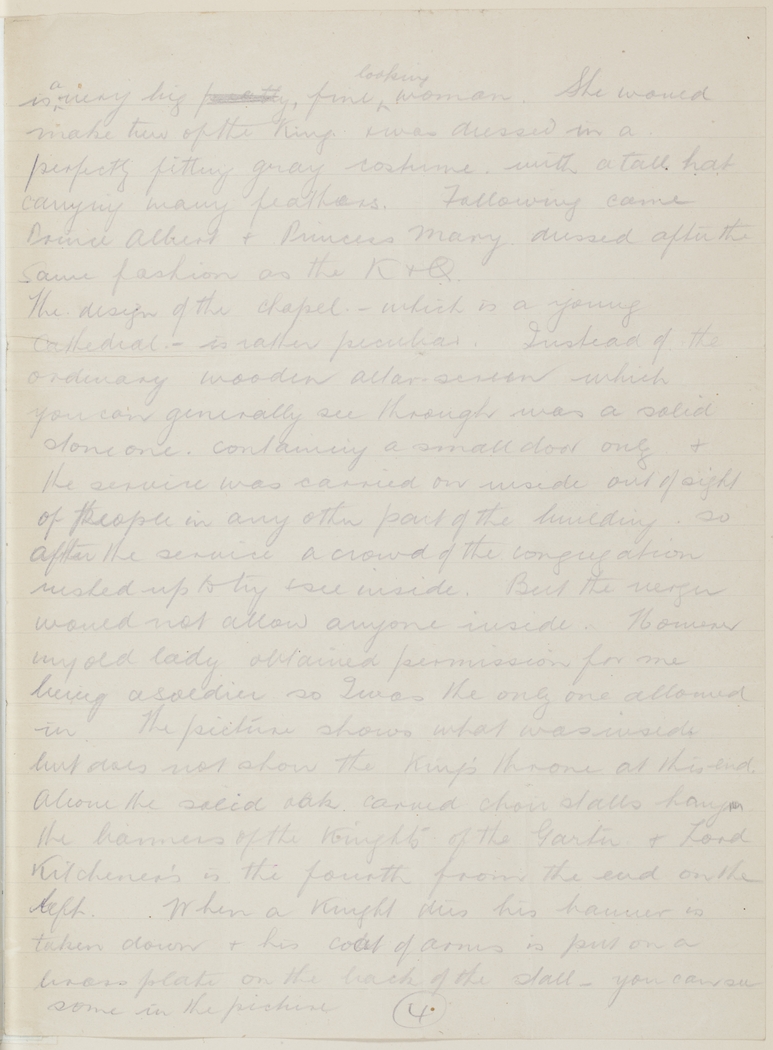 looking
is a very big pretty, fine, woman. She would
make two of the King & was dressed in a
perfectly fitting gray costume. with a tall hat
carrying many feathers. Following came
Prince Albert & Princess Mary dressed after the
same fashion as the K & Q.
The design of the chapel - which is a young
cathedral - is rather peculiar. Instead of the
ordinary wooden altar-screen which
you can generally see through was a solid
stone one. containing a small door only &
the service was carried on inside out of sight
of people in any other part of the building. so
after the service a crowd of the congregation
rushed up to try & see inside. But the verger
would not allow anyone inside. However
my old lady obtained permission for me
being a soldier so I was the only one allowed
in. The picture shows what was inside
but does not show the King's throne at this end.
Above the solid oak carved choir stalls hang
the banners of the Knights of the Garter & Lord
Kitchener's is the fourth from the end on the
left. When a Knight dies his banner is
taken down & his coat of arms is put on a
brass plate on the back of the stall - you can see
some in the picture
4